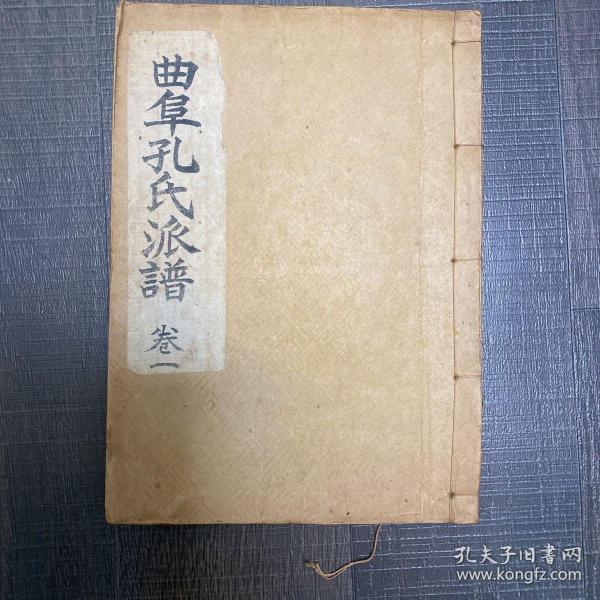 曲阜孔氏派譜
卷一
孔夫子旧书网
www.kongfz.com